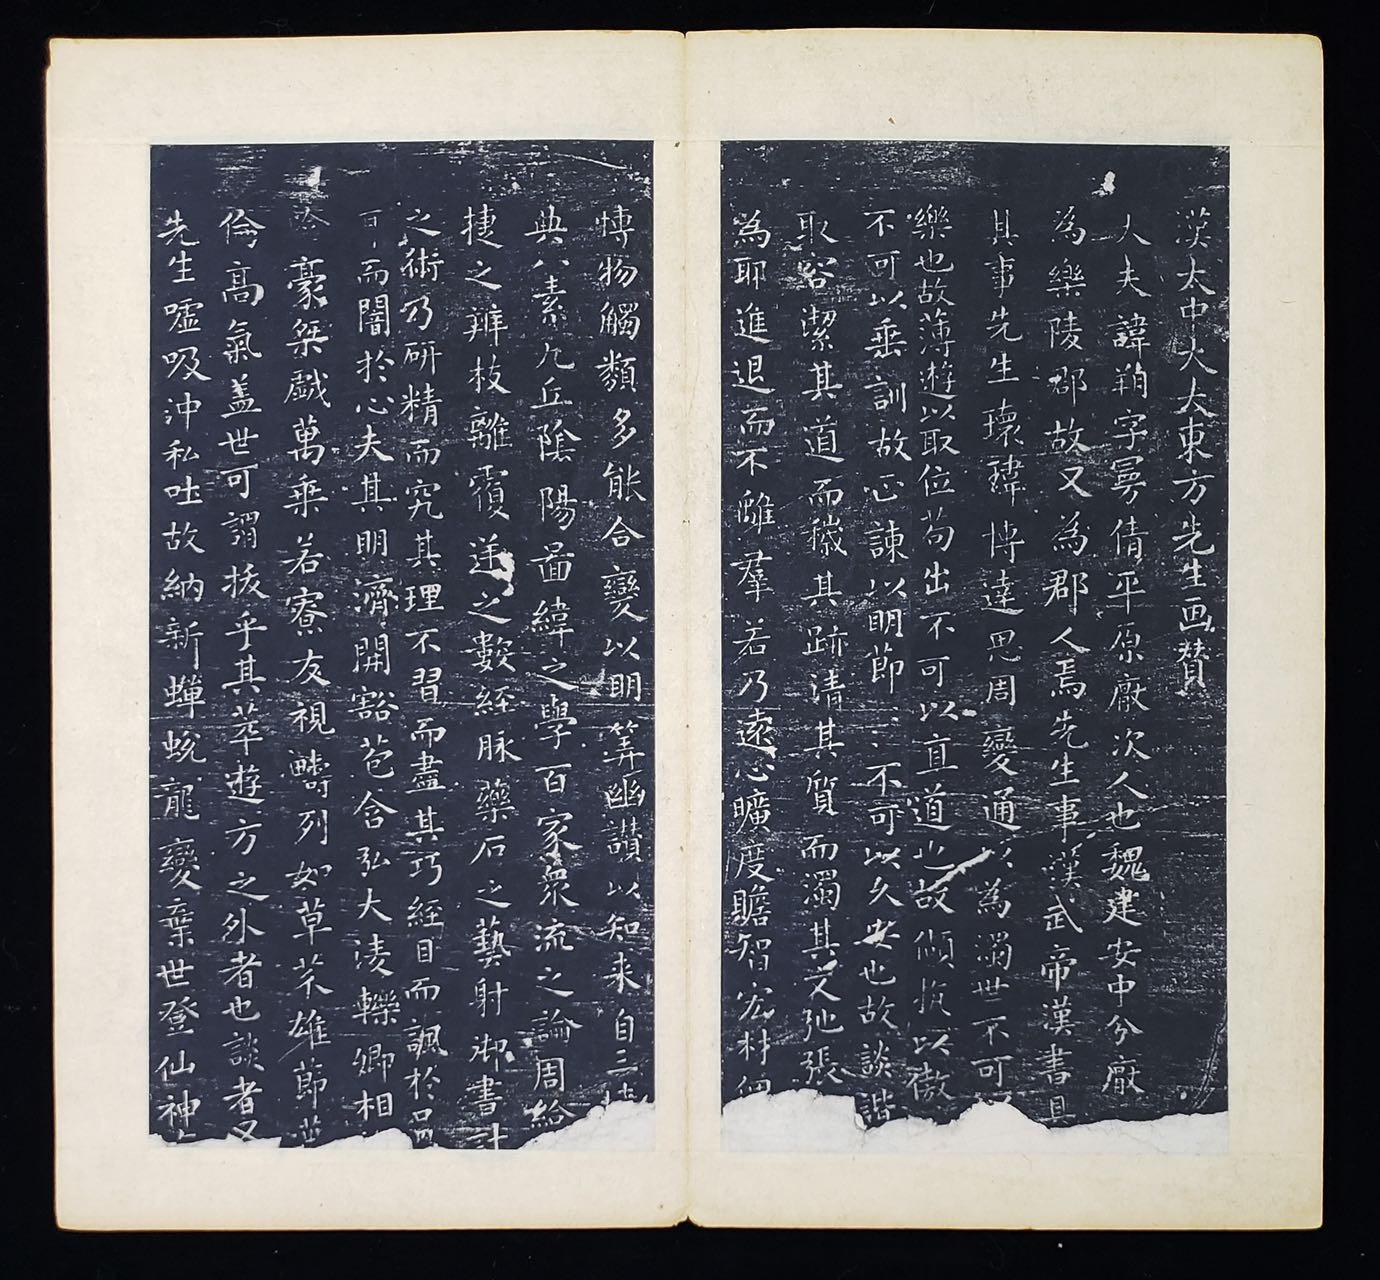 漢太中大夫東方先生画賛
大夫諱朔字曼倩平原厭次人也魏建安中分厭
為樂陵郡故又為郡人焉先生事漢武帝漢書具
其事先生瓌瑋博達思周變通以為濁世不可
樂也故薄遊以取位苟出不可以直道也故傾抗以傲
不可以垂訓故正諫以明節〻不可以久安也故談諧
取容潔其道而穢其跡清其質而濁其文弛張
為耶進退而不離羣若乃遠心曠度贍智宏材倜
博物觸類多能合變以明筭幽讃以知来自三墳
典八素九丘陰陽啚緯之學百家衆流之論周給
捷之辨枝離覆逆之數経脉藥石之藝射御書計
之術乃研精而究其理不習而盡其巧経目而諷於口
耳而闇於心夫其明濟開豁苞含弘大淩轢卿相
哈豪桀戯萬乗若寮友視疇列如草芥雄節邁
倫高氣盖世可謂拔乎其萃遊方之外者也談者又
先生嘘吸沖和吐故納新蟬蛻龍變棄世登仙神